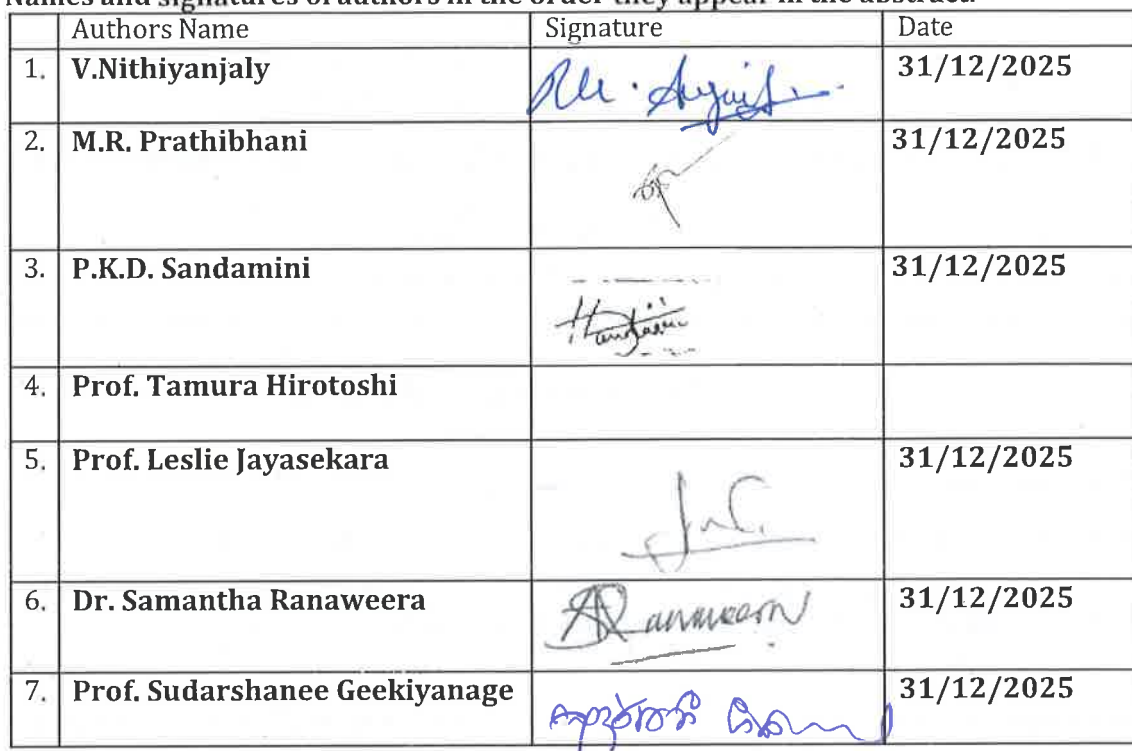 Names and signatures of authors in the order they appear in the abstract.
Authors Name Signature Date
1. V.Nithiyanjaly 31/12/2025
2. M.R. Prathibhani 31/12/2025
3. P.K.D. Sandamini 31/12/2025
4. Prof. Tamura Hirotoshi
5. Prof. Leslie Jayasekara 31/12/2025
6. Dr. Samantha Ranaweera Ranaweera 31/12/2025
7. Prof. Sudarshanee Geekiyanage 31/12/2025